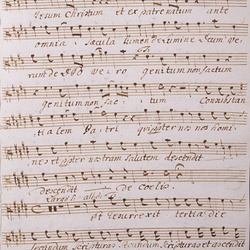 Jesum Christum et ex patre natum ante
omnia sæcula lumen de lumine Deum ve,
rum de Deo vero genitum non factum
genitum non fac: tum Consubstan
tialem Patri qui propter nos homi
nes et propter nostram salutem descendit
descendit de Coelis.
Et resurrexit tertia die
secundum Scripturas secundum Scripturas et ascendit